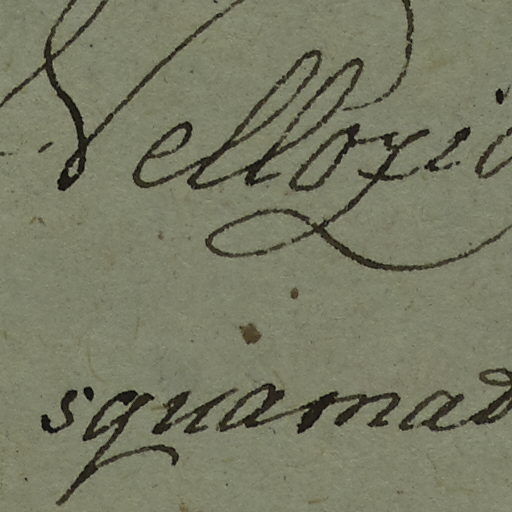 Vellozia
squamad